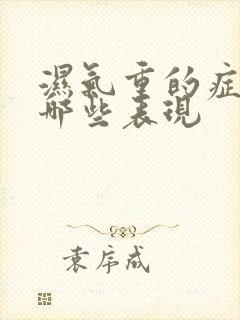 濕氣重的症
哪些表現
袁序成